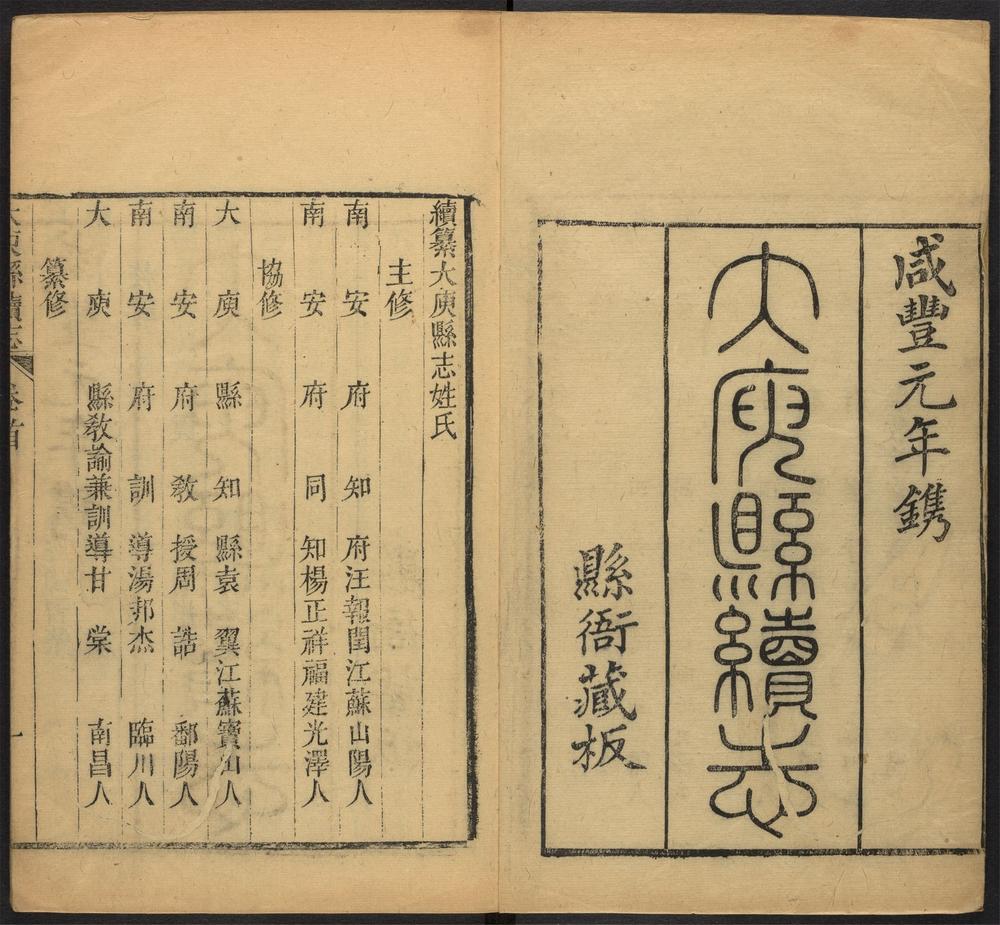 咸豐元年鐫
大庾縣續志
縣衙藏板
續纂大庾縣志姓氏
主修
南安府知府汪報閏江蘇山陽人
南安府同知楊正祥福建光澤人
協修
大庾縣知縣袁翼江蘇寶山人
南安府教授周誥鄱陽人
南安府訓導湯邦杰臨川人
大庾縣教諭兼訓導甘棠南昌人
纂修
大庾縣續志 卷首 一